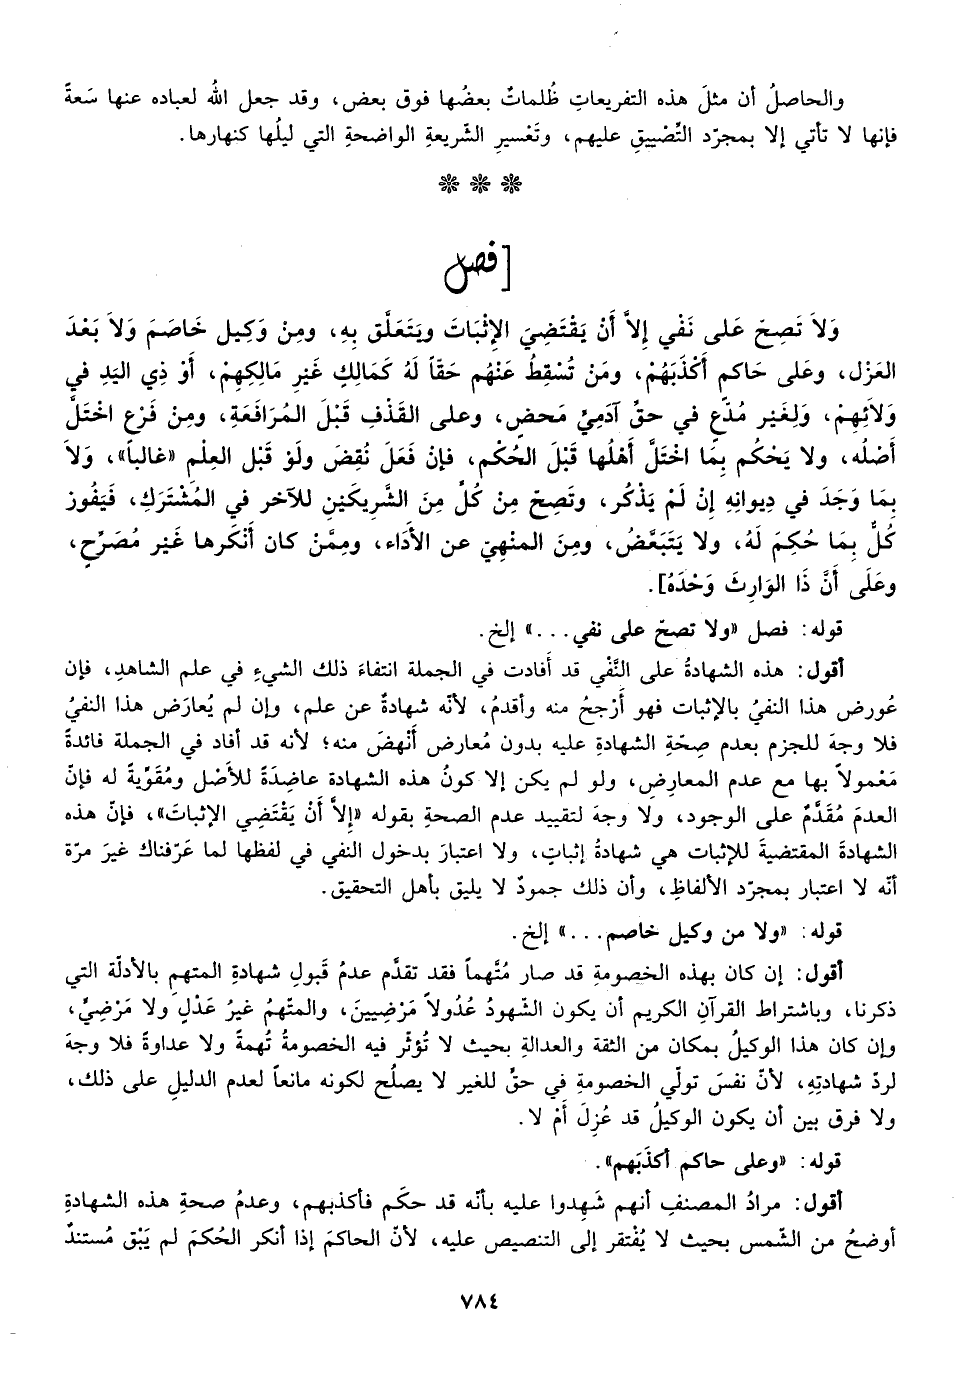 والحاصلُ أن مثلَ هذه التفريعاتِ ظُلماتٌ بعضُها فوق بعض، وقد جعل اللهُ لعباده عنها سَعةً
فإنها لا تأتي إلا بمجرّد التّضْييقِ عليهم، وتَعْسيرِ الشّريعةِ الواضحةِ التي ليلُها كنهارها.
❊ ❊ ❊
[فصل
وَلاَ تَصِحّ عَلى نَفْي إلاَّ أَنْ يَقْتَضِيَ الإِثْبَاتَ ويَتَعَلَّق بِهِ، ومِنْ وَكِيل خَاصَمَ وَلاَ بَعْدَ
العَزْل، وعَلى حَاكمٍ أَكْذَبَهُمْ، ومَنْ تُسْقِطُ عَنْهُم حَقّاً لَهُ كَمَالِكِ غَيْرِ مَالِكِهِمْ، أَوْ ذِي اليَدِ في
وَلاَئِهِمْ، وَلِغَيْر مُدّعٍ في حقِّ آدَمِيٍّ مَحضٍ، وعلى القَذْفِ قَبْلَ المُرَافَعَةِ، ومِنْ فَرْع اخْتَلَّ
أَصْلُه، ولا يَحْكُم بِمَا اخْتَلَّ أَهْلُها قَبْلَ الحُكْم، فإنْ فَعَلَ نُقِضَ ولَوْ قَبْل العِلْمِ «غالباً»، وَلاَ
بِمَا وَجَدَ في دِيوانِهِ إِنْ لَمْ يَذْكُر، وتَصِحّ مِنْ كُلٍّ مِنَ الشَّرِيكَيْنِ للآخر في المُشْتَرَكِ، فَيَفُوز
كُلٌّ بِمَا حُكِمَ لَهُ، ولا يَتَبَعَّضُ، ومِنَ المنْهيّ عن الأدَاء، ومِمَّنْ كان أَنْكَرها غَيْر مُصَرِّحٍ،
وعَلَى أنَّ ذَا الوَارِثَ وَحْدَهُ].
قوله: فصل «ولا تصحّ على نفي...» إلخ.
أقول: هذه الشهادةُ على النَّفْي قد أَفادت في الجملة انتفاءَ ذلك الشيءِ في علم الشاهدِ، فإن
عُورض هذا النفيُ بالإثبات فهو أَرْجحُ منه وأقدمُ، لأنّه شهادةٌ عن علم، وإن لم يُعارَض هذا النفيُ
فلا وجهَ للجزم بعدم صِحّةِ الشهادةِ عليه بدون مُعارض أَنْهضَ منه؛ لأنه قد أفاد في الجملة فائدةً
مَعْمولاً بها مع عدم المعارِضِ، ولو لم يكن إلا كونُ هذه الشهادة عاضِدَةً للأَصْل ومُقَوِّيةً له فإنّ
العدمَ مُقَدَّمٌ على الوجود، ولا وجهَ لتقييد عدم الصحةِ بقوله «إلاَّ أَنْ يَقْتَضِي الإثباتَ»، فإنّ هذه
الشهادةَ المقتضيةَ للإثبات هي شهادةُ إثباتٍ، ولا اعتبارَ بدخول النفي في لفظها لما عَرّفناك غيرَ مرّة
أنّه لا اعتبار بمجرّد الألفاظِ، وأن ذلك جمودٌ لا يليق بأهل التحقيق.
قوله: «ولا من وكيل خاصم...» إلخ.
أقول: إن كان بهذه الخصومةِ قد صار مُتَّهماً فقد تقدَّم عدمُ قَبولِ شهادةِ المتهم بالأدلّة التي
ذكرنا، وباشتراط القرآنِ الكريم أن يكون الشّهودُ عُدُولاً مَرْضِيينَ، والمتّهمُ غيرُ عَدْلٍ ولا مَرْضيٍّ،
وإن كان هذا الوكيلُ بمكان من الثقة والعدالةِ بحيث لا تُؤثّر فيه الخصومةُ تُهمةً ولا عداوةً فلا وجهَ
لردّ شهادتِهِ، لأنّ نفسَ تولّي الخصومةِ في حقٍّ للغير لا يصلُح لكونه مانعاً لعدم الدليلِ على ذلك،
ولا فرق بين أن يكون الوكيلُ قد عُزِلَ أمْ لا.
قوله: «وعلى حاكم أكذَبَهم».
أقول: مرادُ المصنفِ أنهم شَهِدوا عليه بأنّه قد حكَم فأكذبهم، وعدمُ صحةِ هذه الشهادةِ
أوضحُ من الشّمس بحيث لا يُفْتقر إلى التنصيص عليه، لأنّ الحاكمَ إذا أنكر الحُكمَ لم يَبْق مُستندٌ
٧٨٤